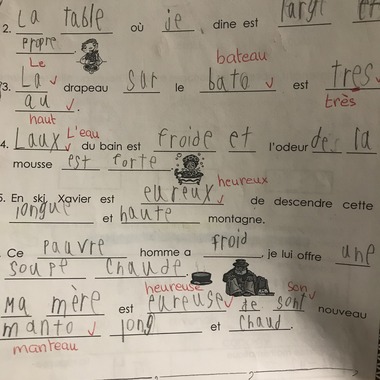 2. La table où je dine est large et
propre
Le bateau
3. La drapeau sur le bato est tres
au très
haut
4. Laux L'eau du bain est froide et l'odeur de la
mousse est forte
heureux
5. En ski Xavier est eureux de descendre cette
longue et haute montagne.
Ce pauvre homme a froid, je lui offre une
soupe chaude
heureuse son
Ma mère est eureuse de sont nouveau
manto long et chaud.
manteau